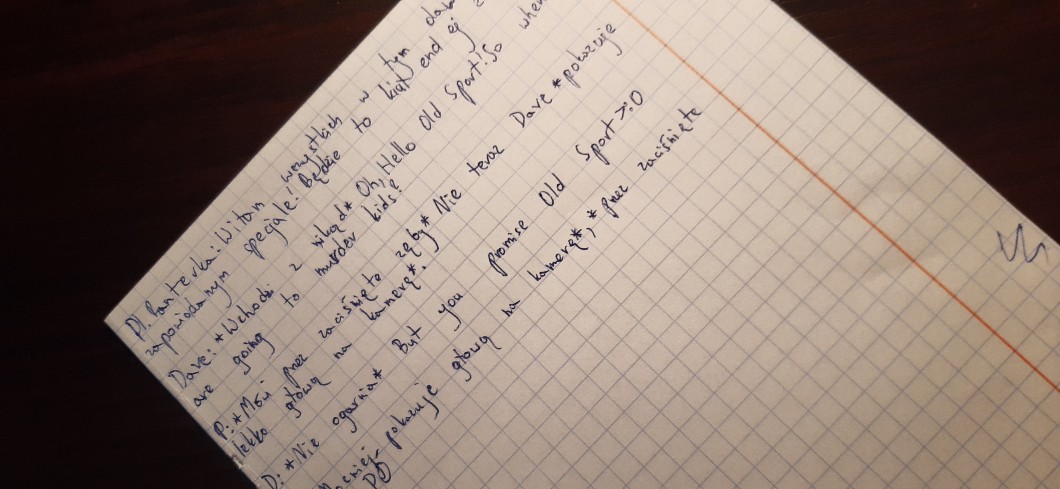 Pl. Panterka: Witam wszystkich w tym
zapowiadanym specjale! Będzie to kiał end ej
Dave: *Wchodzi z nikąd* Oh, Hello Old Sport! So when
are going to murder kids?
P: *Mówi przez zaciśnięte zęby* Nie teraz Dave *pokazuje
lekko głową na kamerę*.
D: *Nie ogarnia* But you promise Old Sport >:O
pokazuje głową na kamerę*, * przez zaciśnięte